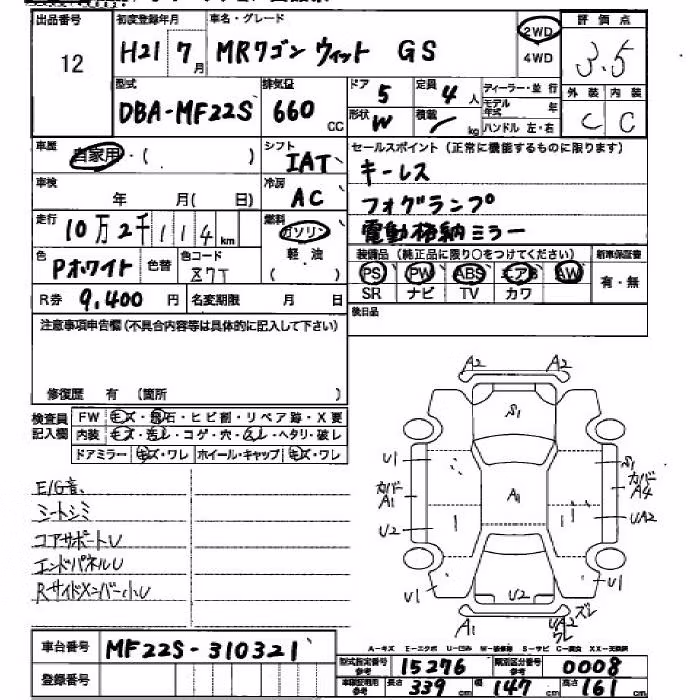 出品番号 初度登録年月 車名・グレード 2WD 4WD 評価点
12 H21 7月 MRワゴン ウィット GS 3.5
型式 排気量 ドア 定員 ディーラー・並行 外装 内装
DBA-MF22S 660 CC 5 4人 モデル年式 年 C C
形状 W 積載 kg ハンドル 左・右
車歴 自家用・( ) シフト IAT セールスポイント(正常に機能するものに限ります)
キーレス
車検 年 月( 日) 冷房 AC フォグランプ
走行 10万2千114km 燃料 ガソリン 軽油 ( ) 電動格納ミラー
色 Pホワイト 色替 色コード Z7T 装備品(純正品に限り○をつけてください) 新車保証書
PS PW ABS エアB AW 有・無
R券 9,400円 名変期限 月 日 SR ナビ TV カワ
注意事項申告欄(不具合内容等は具体的に記入して下さい) 後日品
修復歴 有 (箇所 )
検査員記入欄 FW キズ・飛石・ヒビ割・リペア跡・X要
内装 キズ・汚レ・コゲ・穴・スレ・ヘタリ・破レ
ドアミラー キズ・ワレ ホイール・キャップ キズ・ワレ
A2 A2
S1
U1 S1
カバー A1 A1 カバー A4
U2 UA2
U1 U2 U1
A1 UA2 ズレ ワレ
E/G音、
シートシミ
コアサポートU
エンドパネルU
Rサイドメンバー小U
A-キズ E-エクボ U-凹み W-補修跡 S-サビ C-腐食 XX-交換済
車台番号 MF22S-310321
型式指定番号 参考 15276 類別区分番号 参考 0008
登録番号
車検証用参考 長さ 339 cm 幅 147 cm 高さ 161 cm